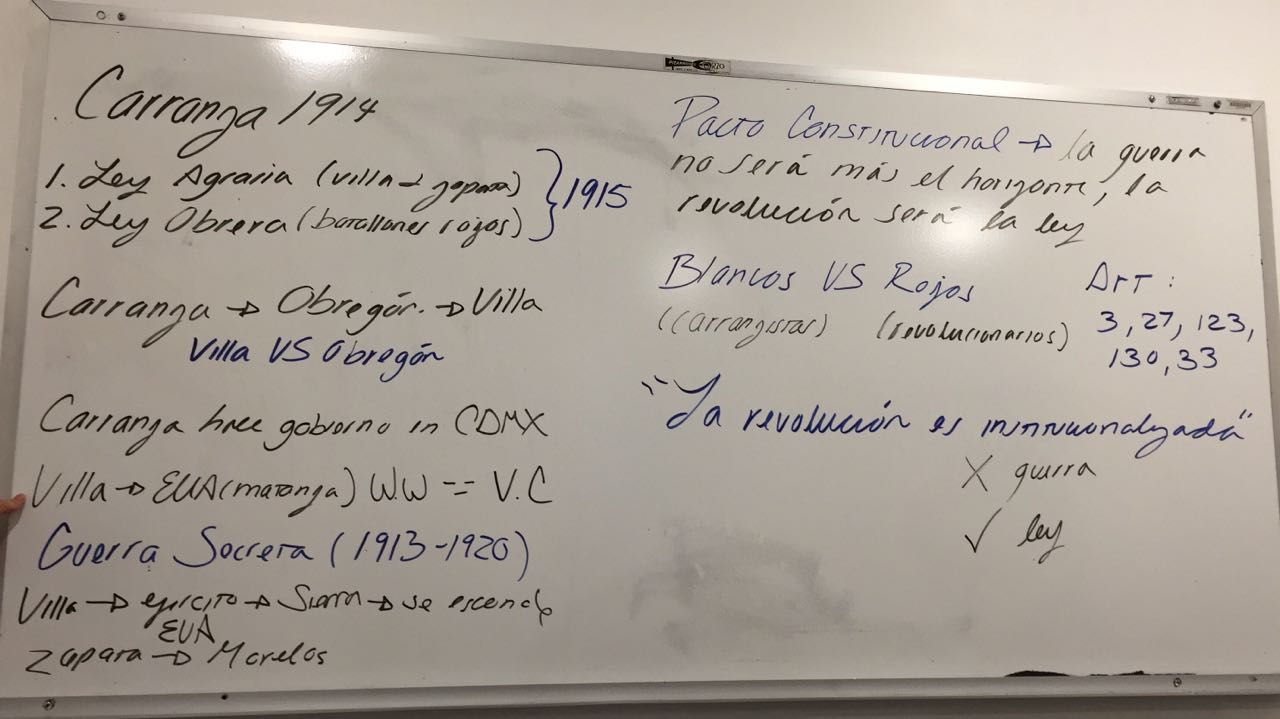 Carranza 1914
1. Ley Agraria (villa y zapata)
2. Ley Obrera (batallones rojos)
} 1915
Carranza → Obregón. → Villa
Villa VS Obregón
Carranza hace gobierno en CDMX
Villa → EUA (matanza) W.W == V.C
Guerra Secreta (1913-1920)
Villa → ejército → Sierra → se esconde
EUA
Zapata → Morelos
Pacto Constitucional → la guerra
no será más el horizonte, la
revolución será la ley
Blancos VS Rojos
(carrangistas) (revolucionarios)
Art :
3, 27, 123,
130, 33
"La revolución es institucionalizada"
X guerra
✓ ley